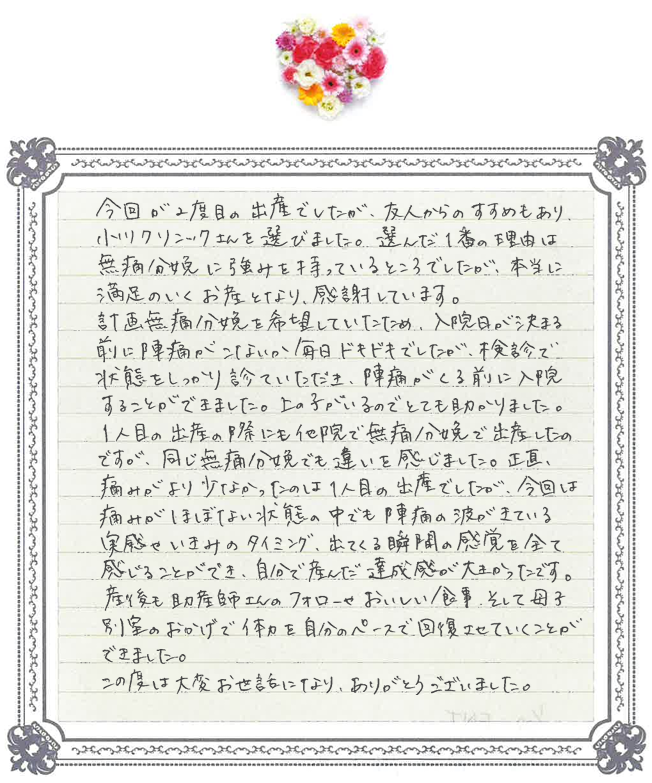 今回が2度目の出産でしたが、友人からのすすめもあり、
小川クリニックさんを選びました。選んだ1番の理由は
無痛分娩に強みを持っているところでしたが、本当に
満足のいくお産となり、感謝しています。
計画無痛分娩を希望していたため、入院日が決まる
前に陣痛がこないか毎日ドキドキでしたが、検診で
状態をしっかり診ていただき、陣痛がくる前に入院
することができました。上の子がいるのでとても助かりました。
1人目の出産の際にも他院で無痛分娩で出産したの
ですが、同じ無痛分娩でも違いを感じました。正直、
痛みがより少なかったのは1人目の出産でしたが、今回は
痛みがほぼない状態の中でも陣痛の波がきている
実感やいきみのタイミング、出てくる瞬間の感覚を全て
感じることができ、自分で産んだ達成感が大きかったです。
産後も助産師さんのフォローやおいしい食事、そして母子
別室のおかげで体力を自分のペースで回復させていくことが
できました。
この度は大変お世話になり、ありがとうございました。